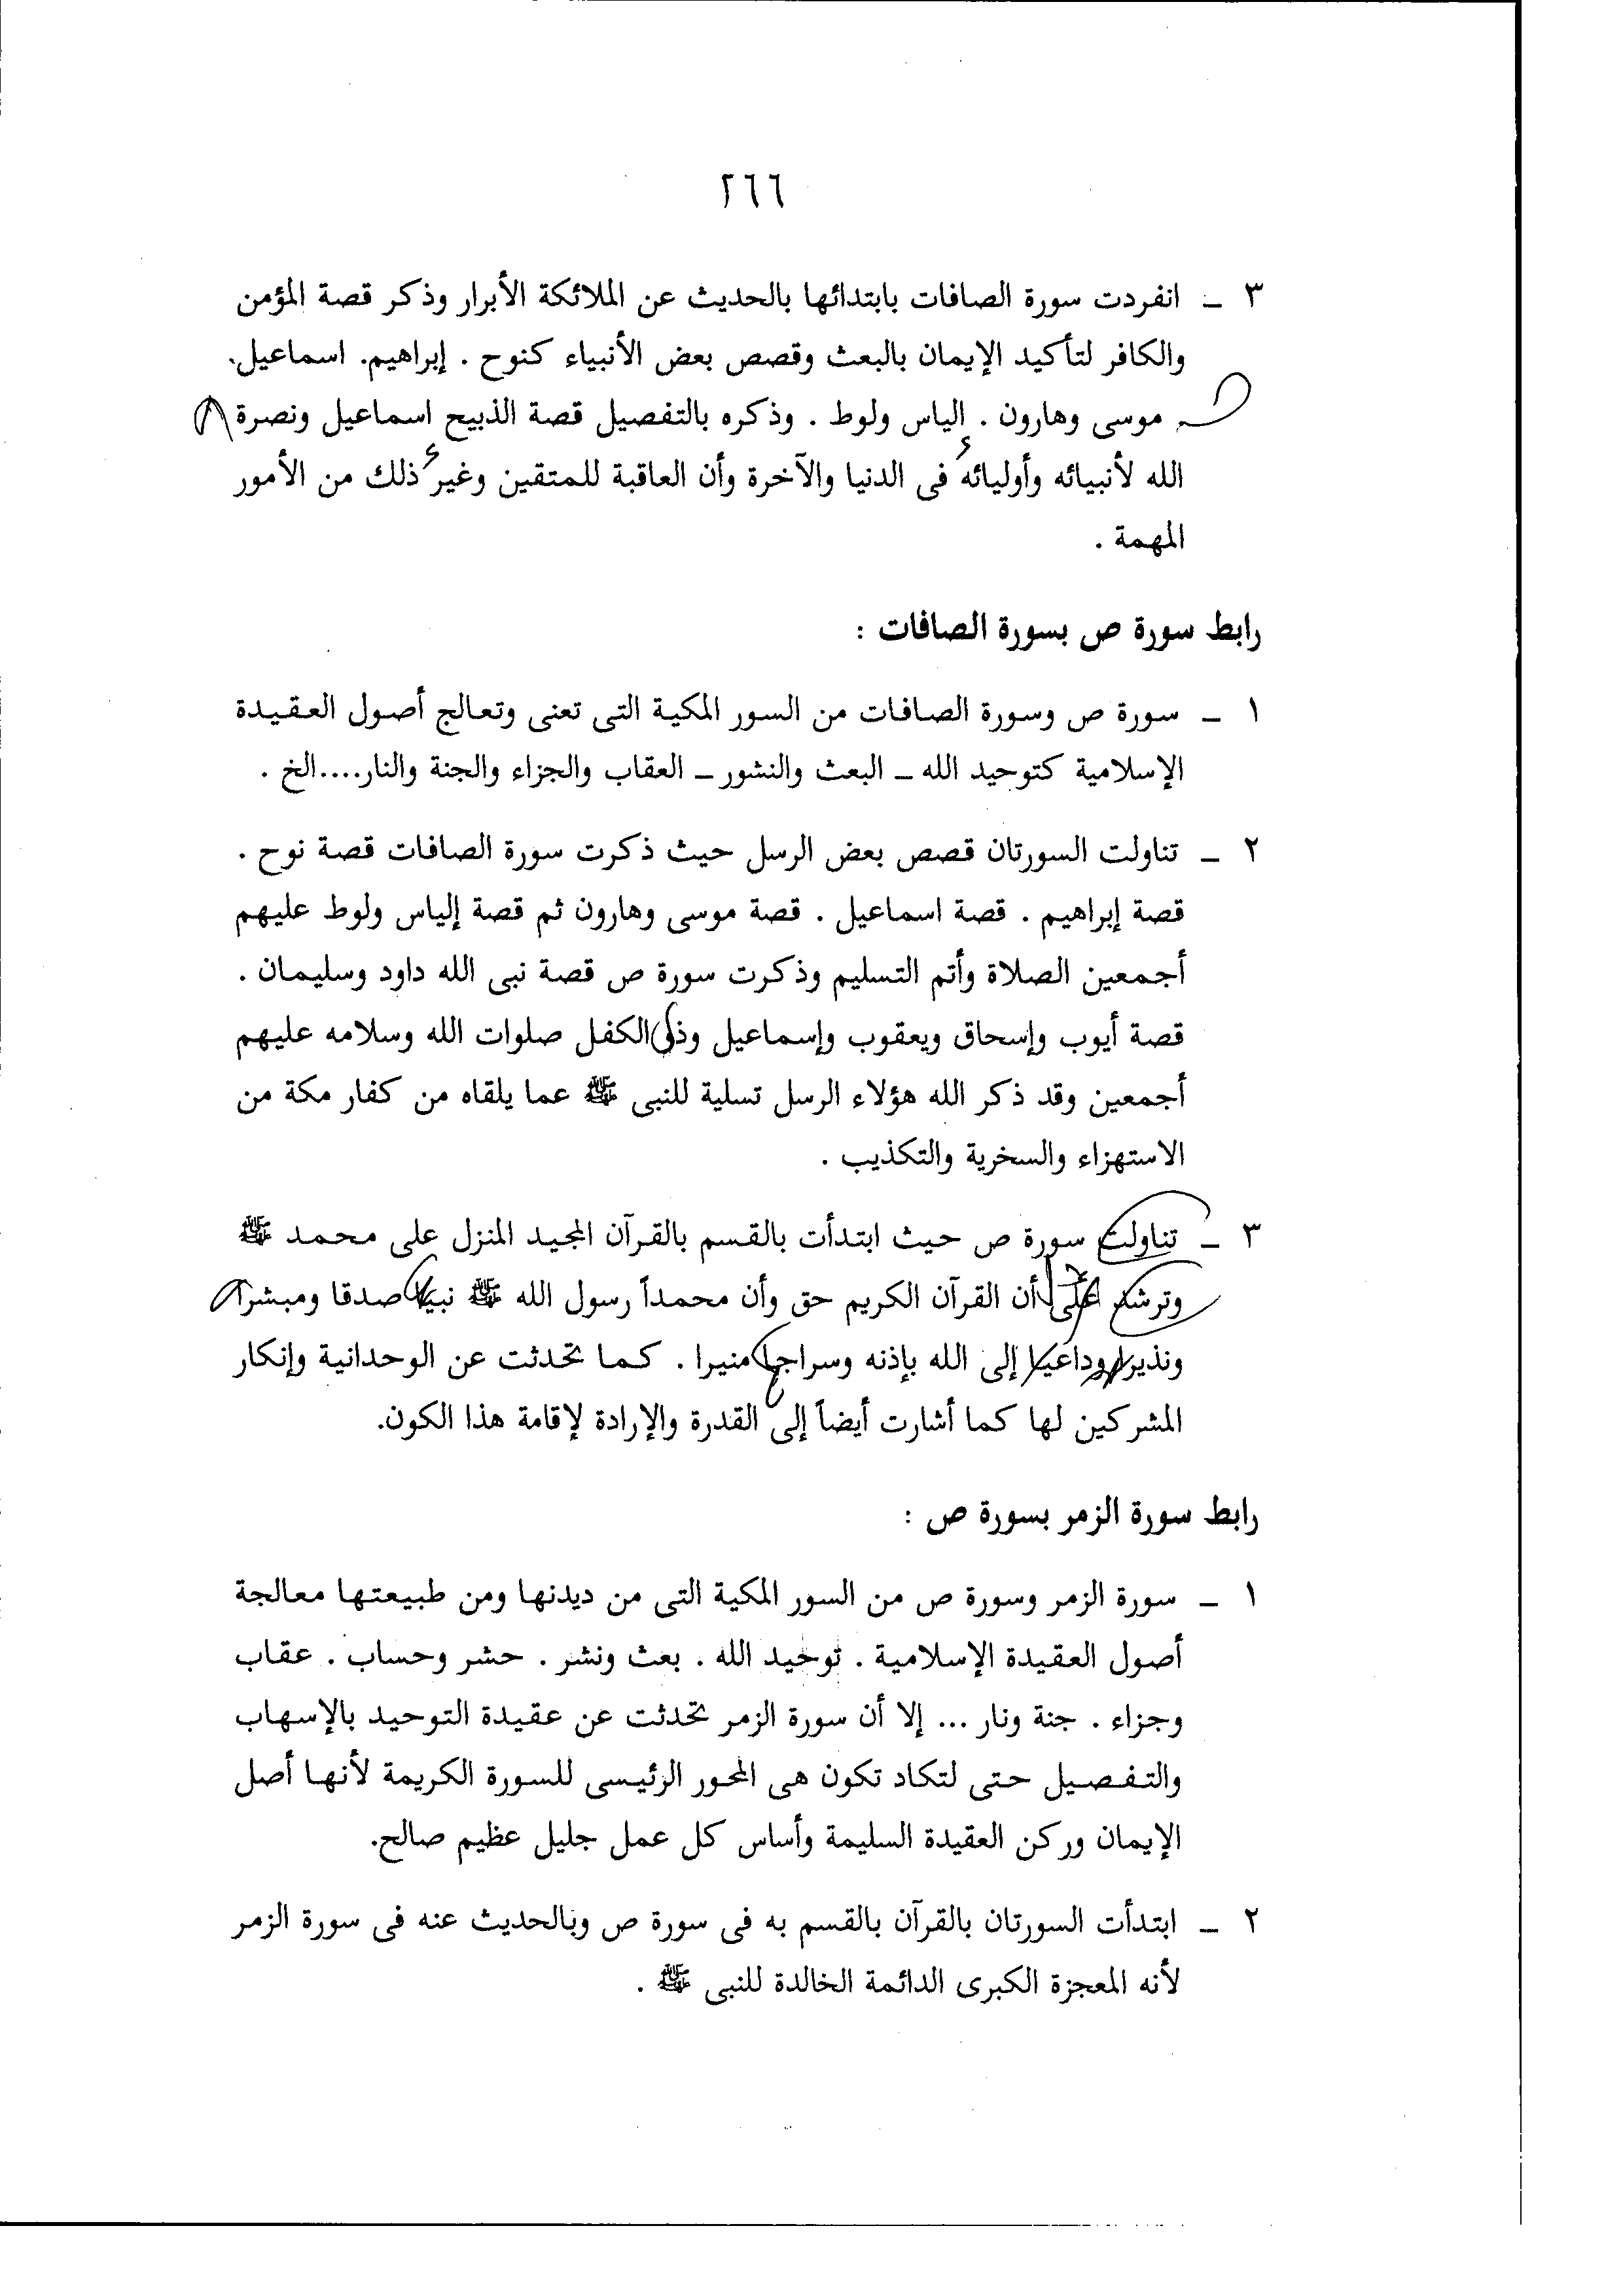 ٢٦٦
٣ ـ انفردت سورة الصافات بابتدائها بالحديث عن الملائكة الأبرار وذكر قصة المؤمن
والكافر لتأكيد الإيمان بالبعث وقصص بعض الأنبياء كنوح . إبراهيم. اسماعيل.
موسى وهارون . إلياس ولوط . وذكره بالتفصيل قصة الذبيح اسماعيل ونصرة
الله لأنبيائه وأوليائه فى الدنيا والآخرة وأن العاقبة للمتقين وغير ذلك من الأمور
المهمة .
رابط سورة ص بسورة الصافات :
١ ـ سورة ص وسورة الصافات من السور المكية التى تعنى وتعالج أصول العقيدة
الإسلامية كتوحيد الله ـ البعث والنشور ـ العقاب والجزاء والجنة والنار....الخ .
٢ ـ تناولت السورتان قصص بعض الرسل حيث ذكرت سورة الصافات قصة نوح .
قصة إبراهيم . قصة اسماعيل . قصة موسى وهارون ثم قصة إلياس ولوط عليهم
أجمعين الصلاة وأتم التسليم وذكرت سورة ص قصة نبى الله داود وسليمان .
قصة أيوب وإسحاق ويعقوب وإسماعيل وذى الكفل صلوات الله وسلامه عليهم
أجمعين وقد ذكر الله هؤلاء الرسل تسلية للنبى ﷺ عما يلقاه من كفار مكة من
الاستهزاء والسخرية والتكذيب .
٣ ـ تناولت سورة ص حيث ابتدأت بالقسم بالقرآن المجيد المنزل على محمد ﷺ
وترشد على أن القرآن الكريم حق وأن محمداً رسول الله ﷺ نبيا صدقا ومبشرا
ونذيرا وداعيا إلى الله بإذنه وسراجا منيرا . كما تحدثت عن الوحدانية وإنكار
المشركين لها كما أشارت أيضاً إلى القدرة والإرادة لإقامة هذا الكون.
رابط سورة الزمر بسورة ص :
١ ـ سورة الزمر وسورة ص من السور المكية التى من ديدنها ومن طبيعتها معالجة
أصول العقيدة الإسلامية . توحيد الله . بعث ونشر . حشر وحساب . عقاب
وجزاء . جنة ونار ... إلا أن سورة الزمر تحدثت عن عقيدة التوحيد بالإسهاب
والتفصيل حتى لتكاد تكون هى المحور الرئيسى للسورة الكريمة لأنها أصل
الإيمان وركن العقيدة السليمة وأساس كل عمل جليل عظيم صالح.
٢ ـ ابتدأت السورتان بالقرآن بالقسم به فى سورة ص وبالحديث عنه فى سورة الزمر
لأنه المعجزة الكبرى الدائمة الخالدة للنبى ﷺ .